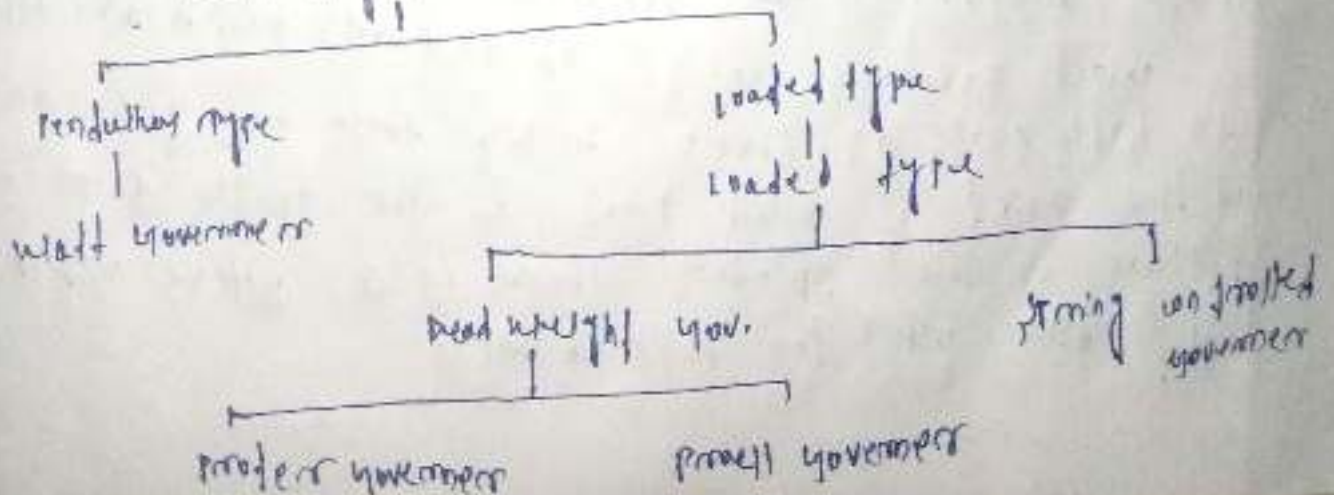 Pendulum type
Loaded type
Loaded type
Watt Governer
Dead weight Gov.
Spring controlled
Governer
Proter Governer
Proell Governer